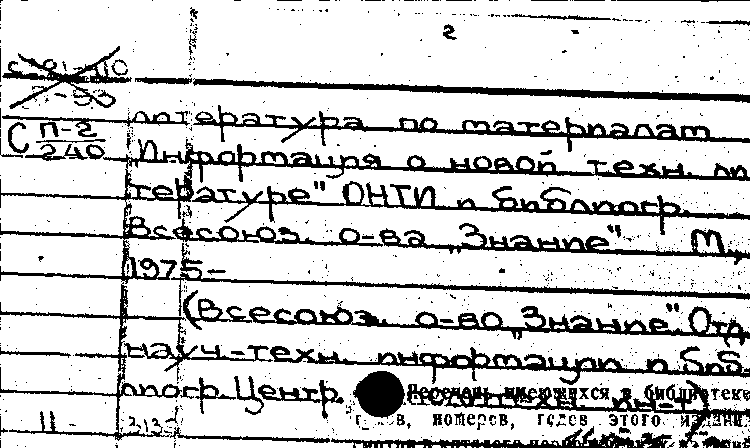 2
С П-2
240
литература по материалам
"Информация о новой техн. ли
тературе" ОНТИ и библиогр.
Всесоюз. о-ва "Знание". М.,
1975-
(Всесоюз. о-во "Знание". Отд.
науч.-техн. информации и биб
лиогр. Центр. политехн.
Перечень имеющихся в библиотеке
номеров, годов этого издания
11-